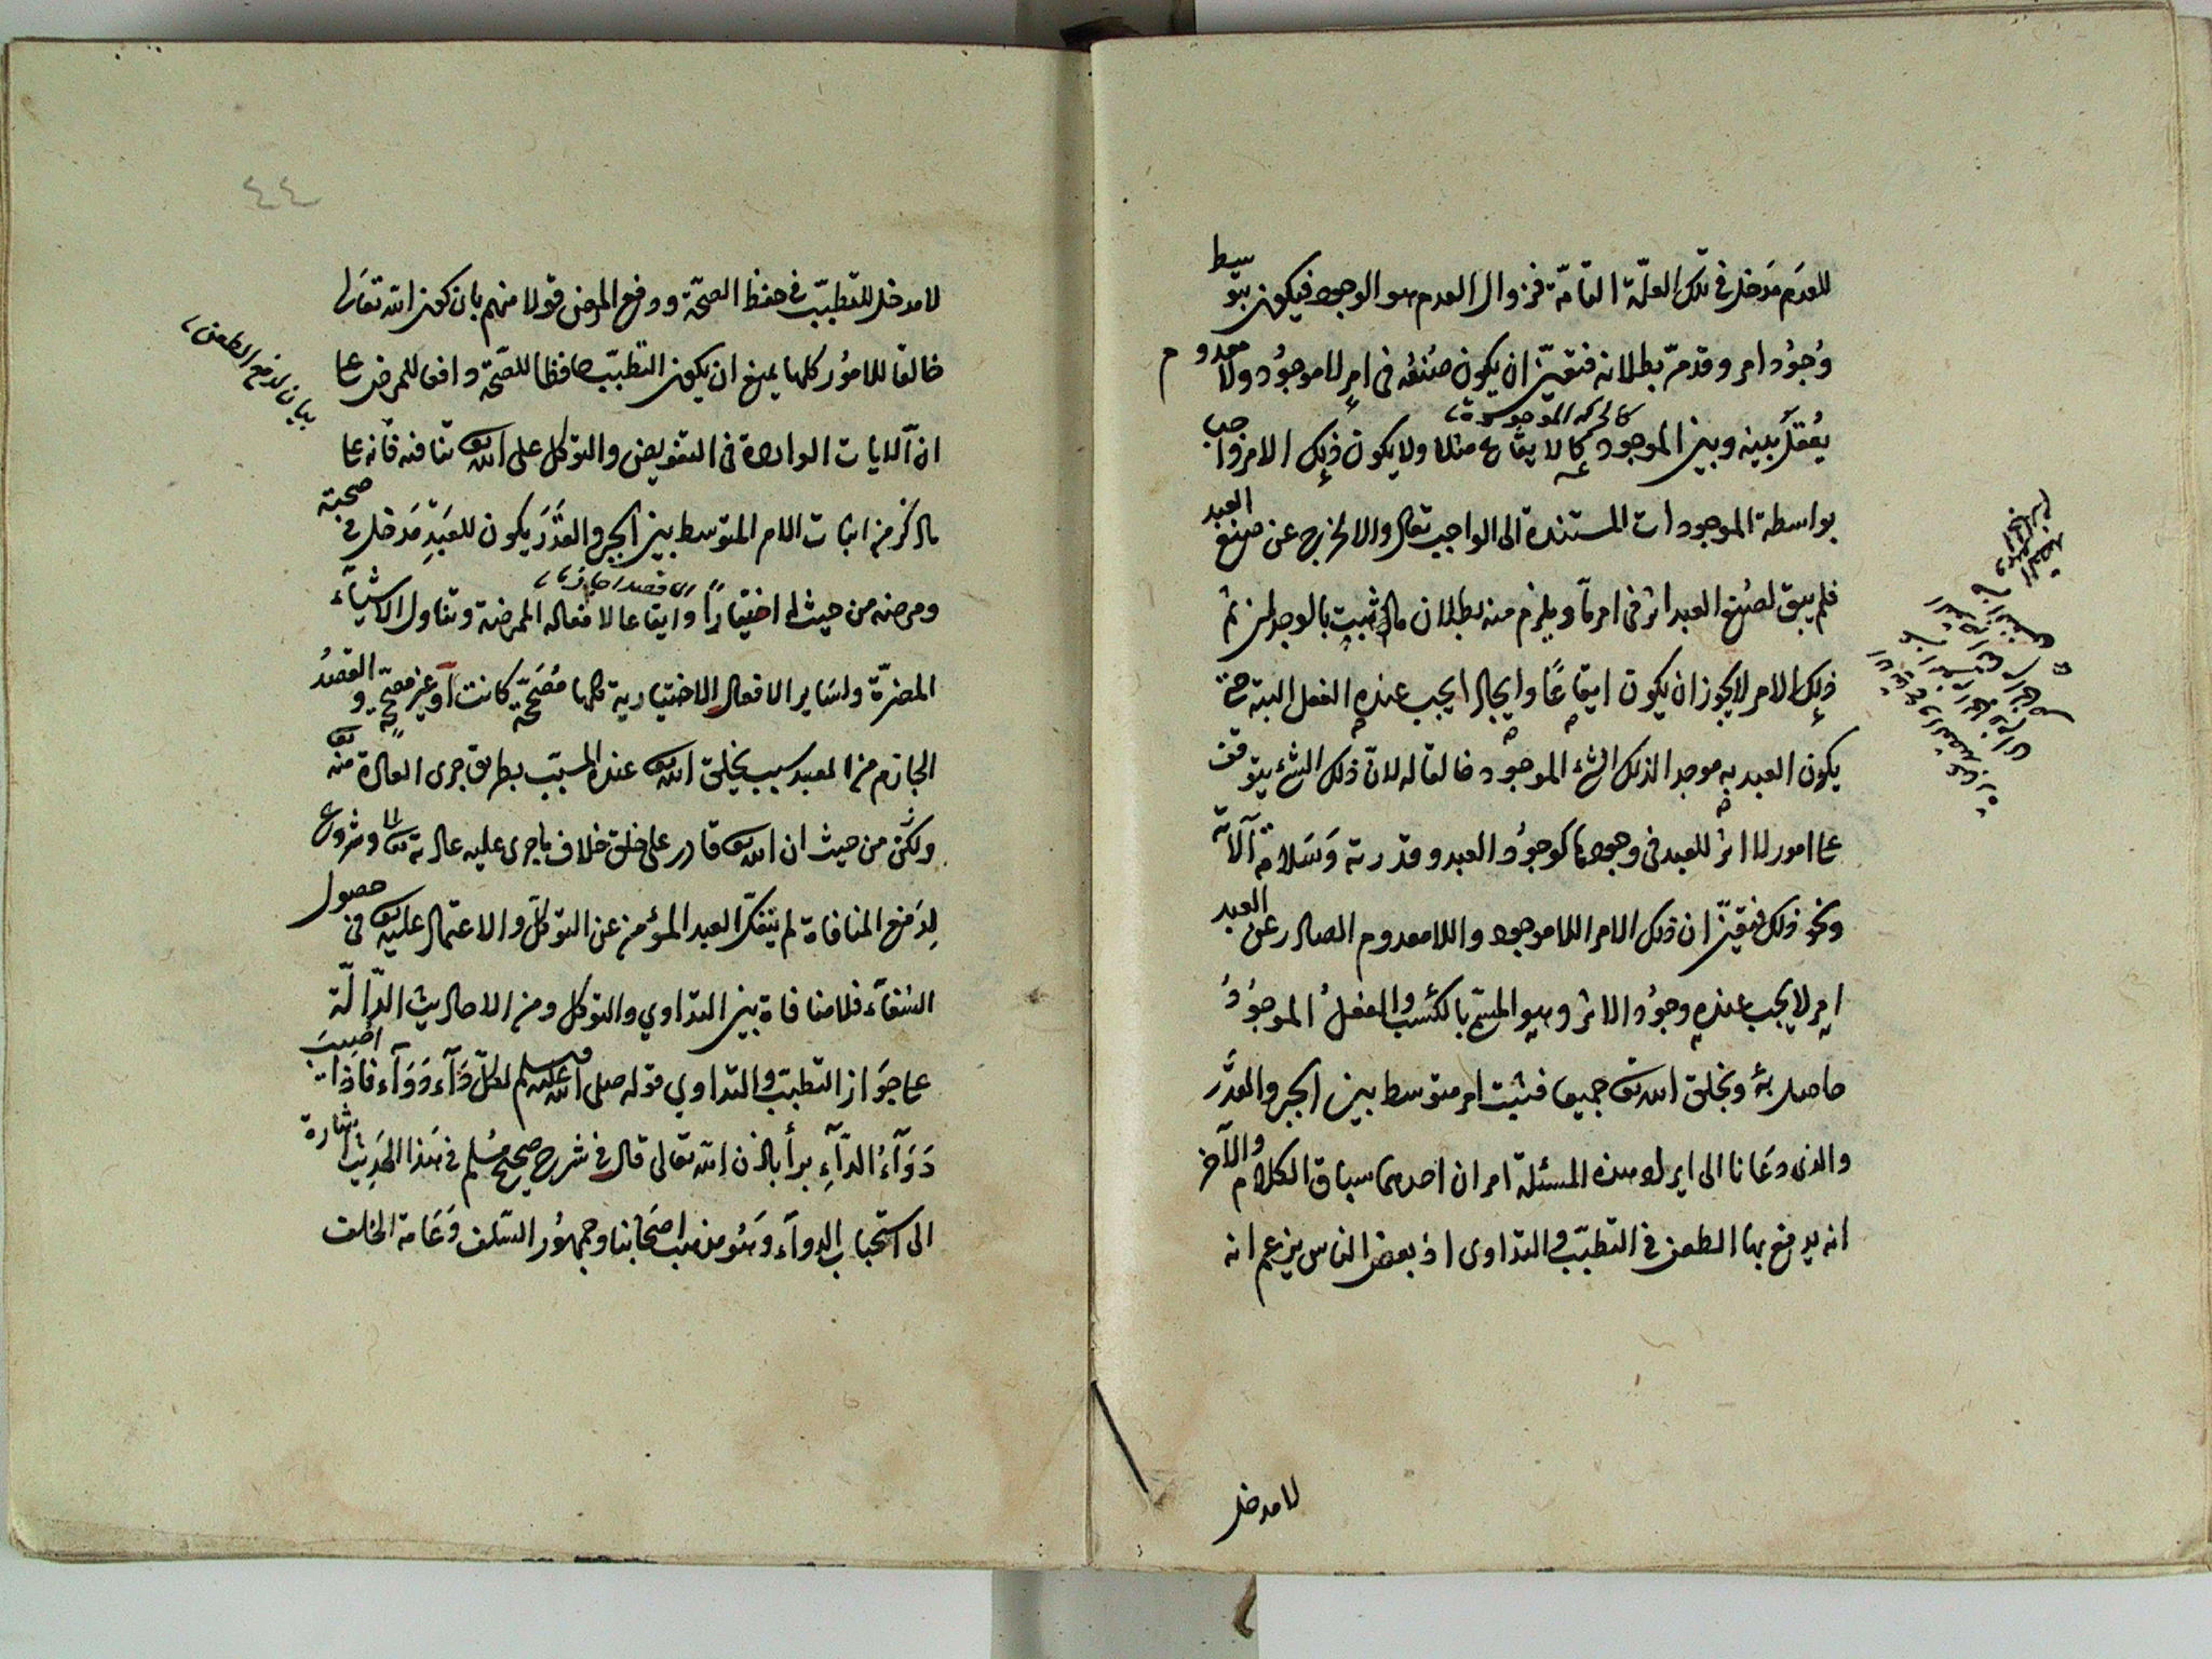 للعدم مدخل فى تلك العلّة التامّة فزوال العدم هو الوجود فيكون بتوسيط
وُجُود امر وقد مرّ بطلانه فتعيّن ان يكون صُنعُه فى امرٍ لا موجُود ولا معدوم
كالحركة الموجودة
يُعقلُ بينه وبين الموجود كالايقاع مثلا ولا يكون ذلك الامر واجب
بواسطة الموجودات المستندة الى الواجب تعالى والا لخرج عن صنع العبد
فلم يبق لصُنع العبد اثر فى امر مّا ويلزم منه بطلان ما ثبت بالوجدان ثم
ذلك الامر لا يجوز ان يكون ايقاعًا وايجادا يجب عنده الفعل البتة حتى
يكون العبد به موجدا لذلك الشئ الموجود خالقا له لانّ ذلك الشئ يتوقف
على امور لا اثر للعبد فى وجودها كوجُود العبد وقدرته وَسَلامة آلاته
ونحو ذلك فتعيّن ان ذلك الامر اللاموجود واللامعدوم الصادر عن العبد
امر لا يجب عنده وجوُد الاثر وهو المسمّى بالكَسْب والفعلُ الموجوُدُ
حاصل بهٔ وبخلق الله تعا جميعا فثبت امر متوسط بين الجبر والقدَر
والذى دعَانا الى ايراد هذه المسئلة امران احدهما سياق الكلام والآخر
انه يدفع بها الطعن فى التطبّب والتداوى اذ بعض الناس يزعم انه
لا مدخل
٤٤
لا مدخل للتطبّب فى حفظ الصحّة ودفع المرض قولا منهم بان كون الله تعَالى
بيان لدفع الطعن
خالقا للامُور كلها يمنع ان يكون التطبّب حافظا للصّحّة دافعا للمرض على
ان الآيات الواردة فى التفويض والتوكل على الله تع تنافيه فانه على
ما ذكر من اثبات الامر المتوسط بين الجبر والقدَر يكون للعَبدِ مَدخل فى صحّته
اى قصدا جازما
ومرضه من حيث ان له اختيارًا وايقاعا لافعاله الممرضة وتناول الاشيَآء
المضرّة ولسَاير الافعال الاختيارية كلها مُصَحّة كانت أو غير مصحّة والقصدُ
الجازم من العبد سبب يخلق الله تع عنده المسبّب بطريق جرى العادة منه تع
ولكن من حيث ان الله تع قادر على خلق خلاف ما جرى عليه عادته تع وشروع
لِدَفع المنافاة لم ينفكّ العبد المؤمن عن التوكّل والاعتماد عليه تع فى حصول
الشفآء فلا منافاة بين التداوي والتوكل ومن الاحاديث الدّالّة
على جوَاز التطبّب والتداوي قوله صلى الله عليه وسلم لكلّ دَآء دَوَآء فاذا اُصيبَ
دَوَآءُ الدّآءِ برأ باذن الله تعالى قال فى شرح صحيح مُسْلم فى هَذا الحَديث اشارة
الى استحباب الدوآء وَهُو مذهب اصحَابنا وجمهُور السّلف وَعَامة الخلف